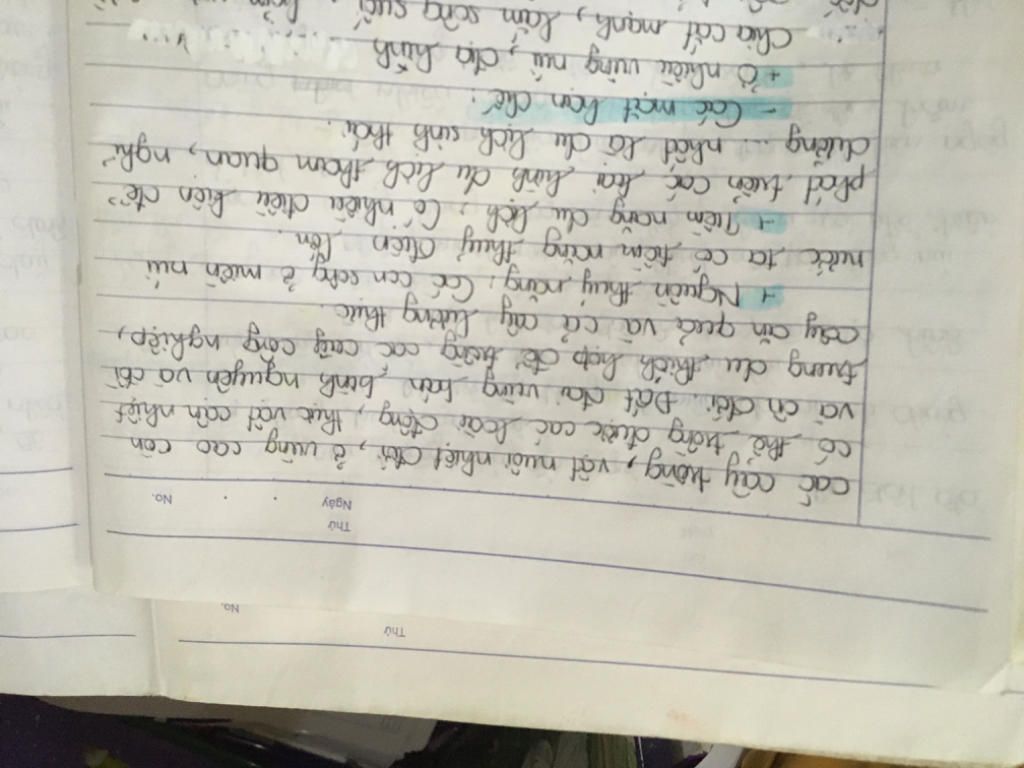 Thứ
No.
Thứ
Ngày
No.
các cây trồng, vật nuôi nhiệt đới, ở vùng cao còn
có thể trồng được các loài động, thực vật cận nhiệt
và ôn đới. Đất đai vùng bán bình nguyên và đồi
trung du thích hợp để trồng các cây công nghiệp,
cây ăn quả và cả cây lương thực.
+ Nguồn thuỷ năng: Các con sông ở miền núi
nước ta có tiềm năng thuỷ điện lớn.
+ Tiềm năng du lịch: Có nhiều điều kiện để
phát triển các loại hình du lịch tham quan, nghỉ
dưỡng... nhất là du lịch sinh thái.
- Các mặt hạn chế:
+ Ở nhiều vùng núi, địa hình
chia cắt mạnh, lắm sông suối